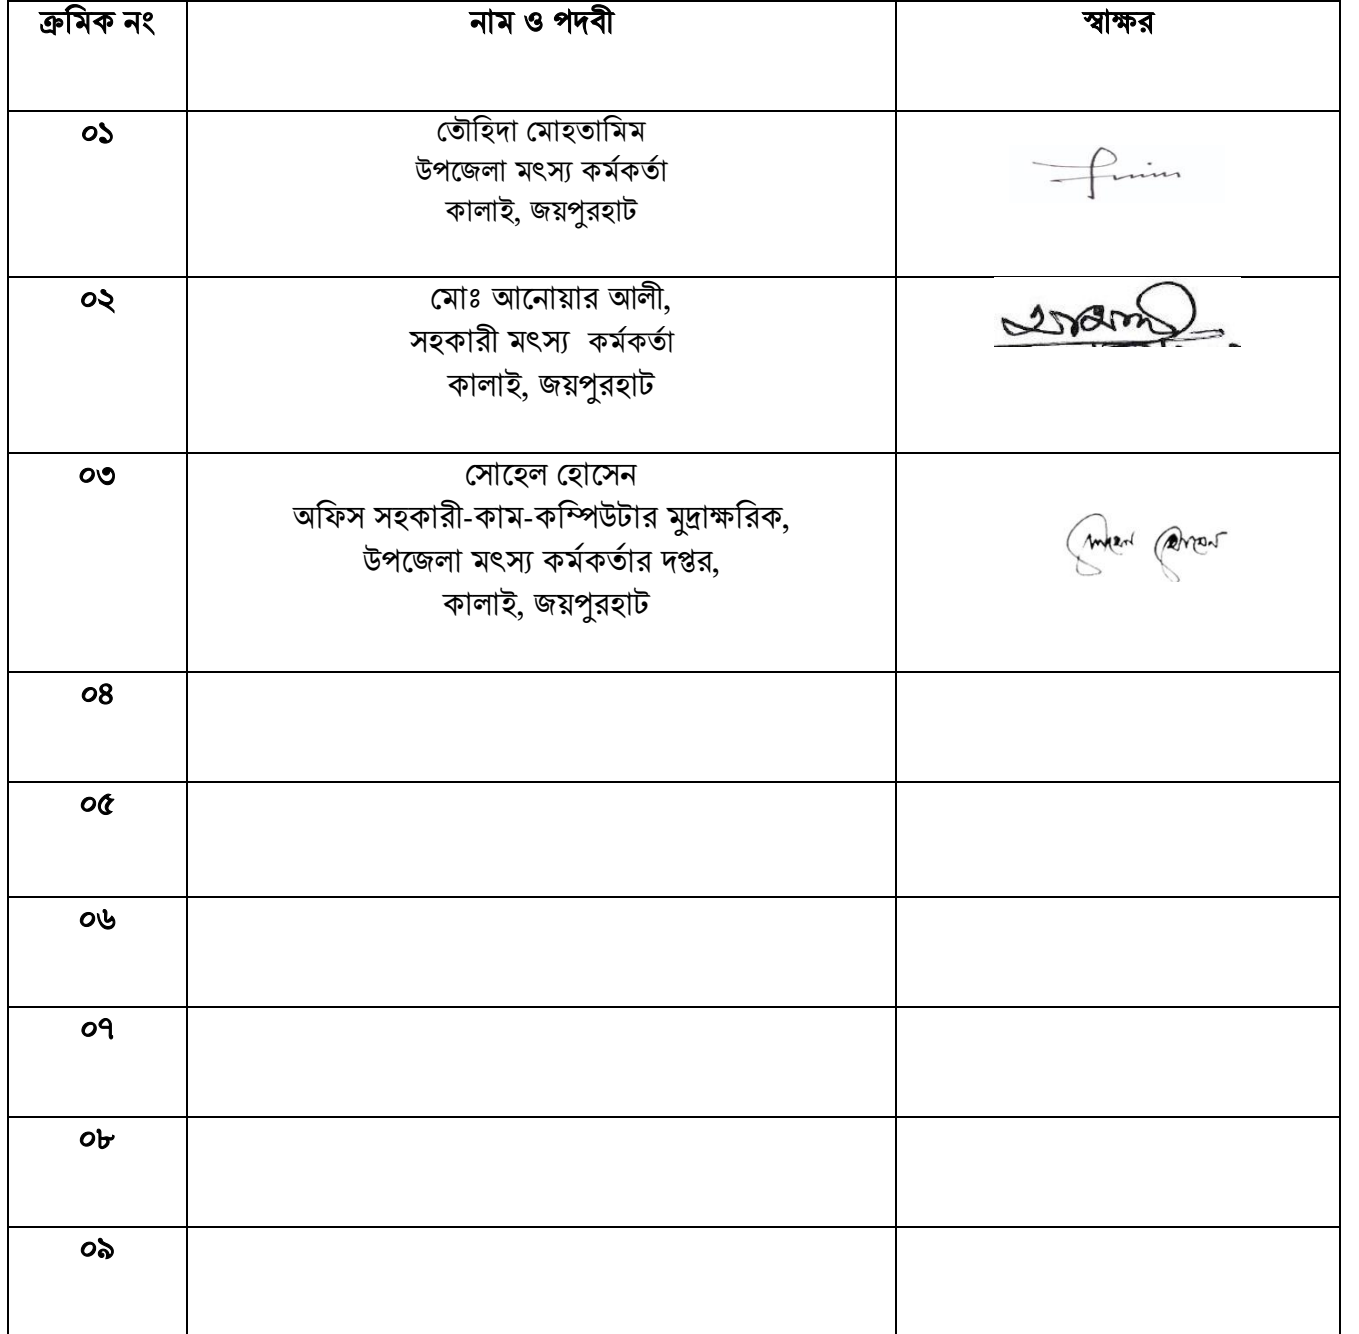 ক্রমিক নং নাম ও পদবী স্বাক্ষর
০১ তৌহিদা মোহতামিম
উপজেলা মৎস্য কর্মকর্তা
কালাই, জয়পুরহাট
০২ মোঃ আনোয়ার আলী,
সহকারী মৎস্য কর্মকর্তা
কালাই, জয়পুরহাট
০৩ সোহেল হোসেন
অফিস সহকারী-কাম-কম্পিউটার মুদ্রাক্ষরিক,
উপজেলা মৎস্য কর্মকর্তার দপ্তর,
কালাই, জয়পুরহাট
সোহেল হোসেন
০৪
০৫
০৬
০৭
০৮
০৯